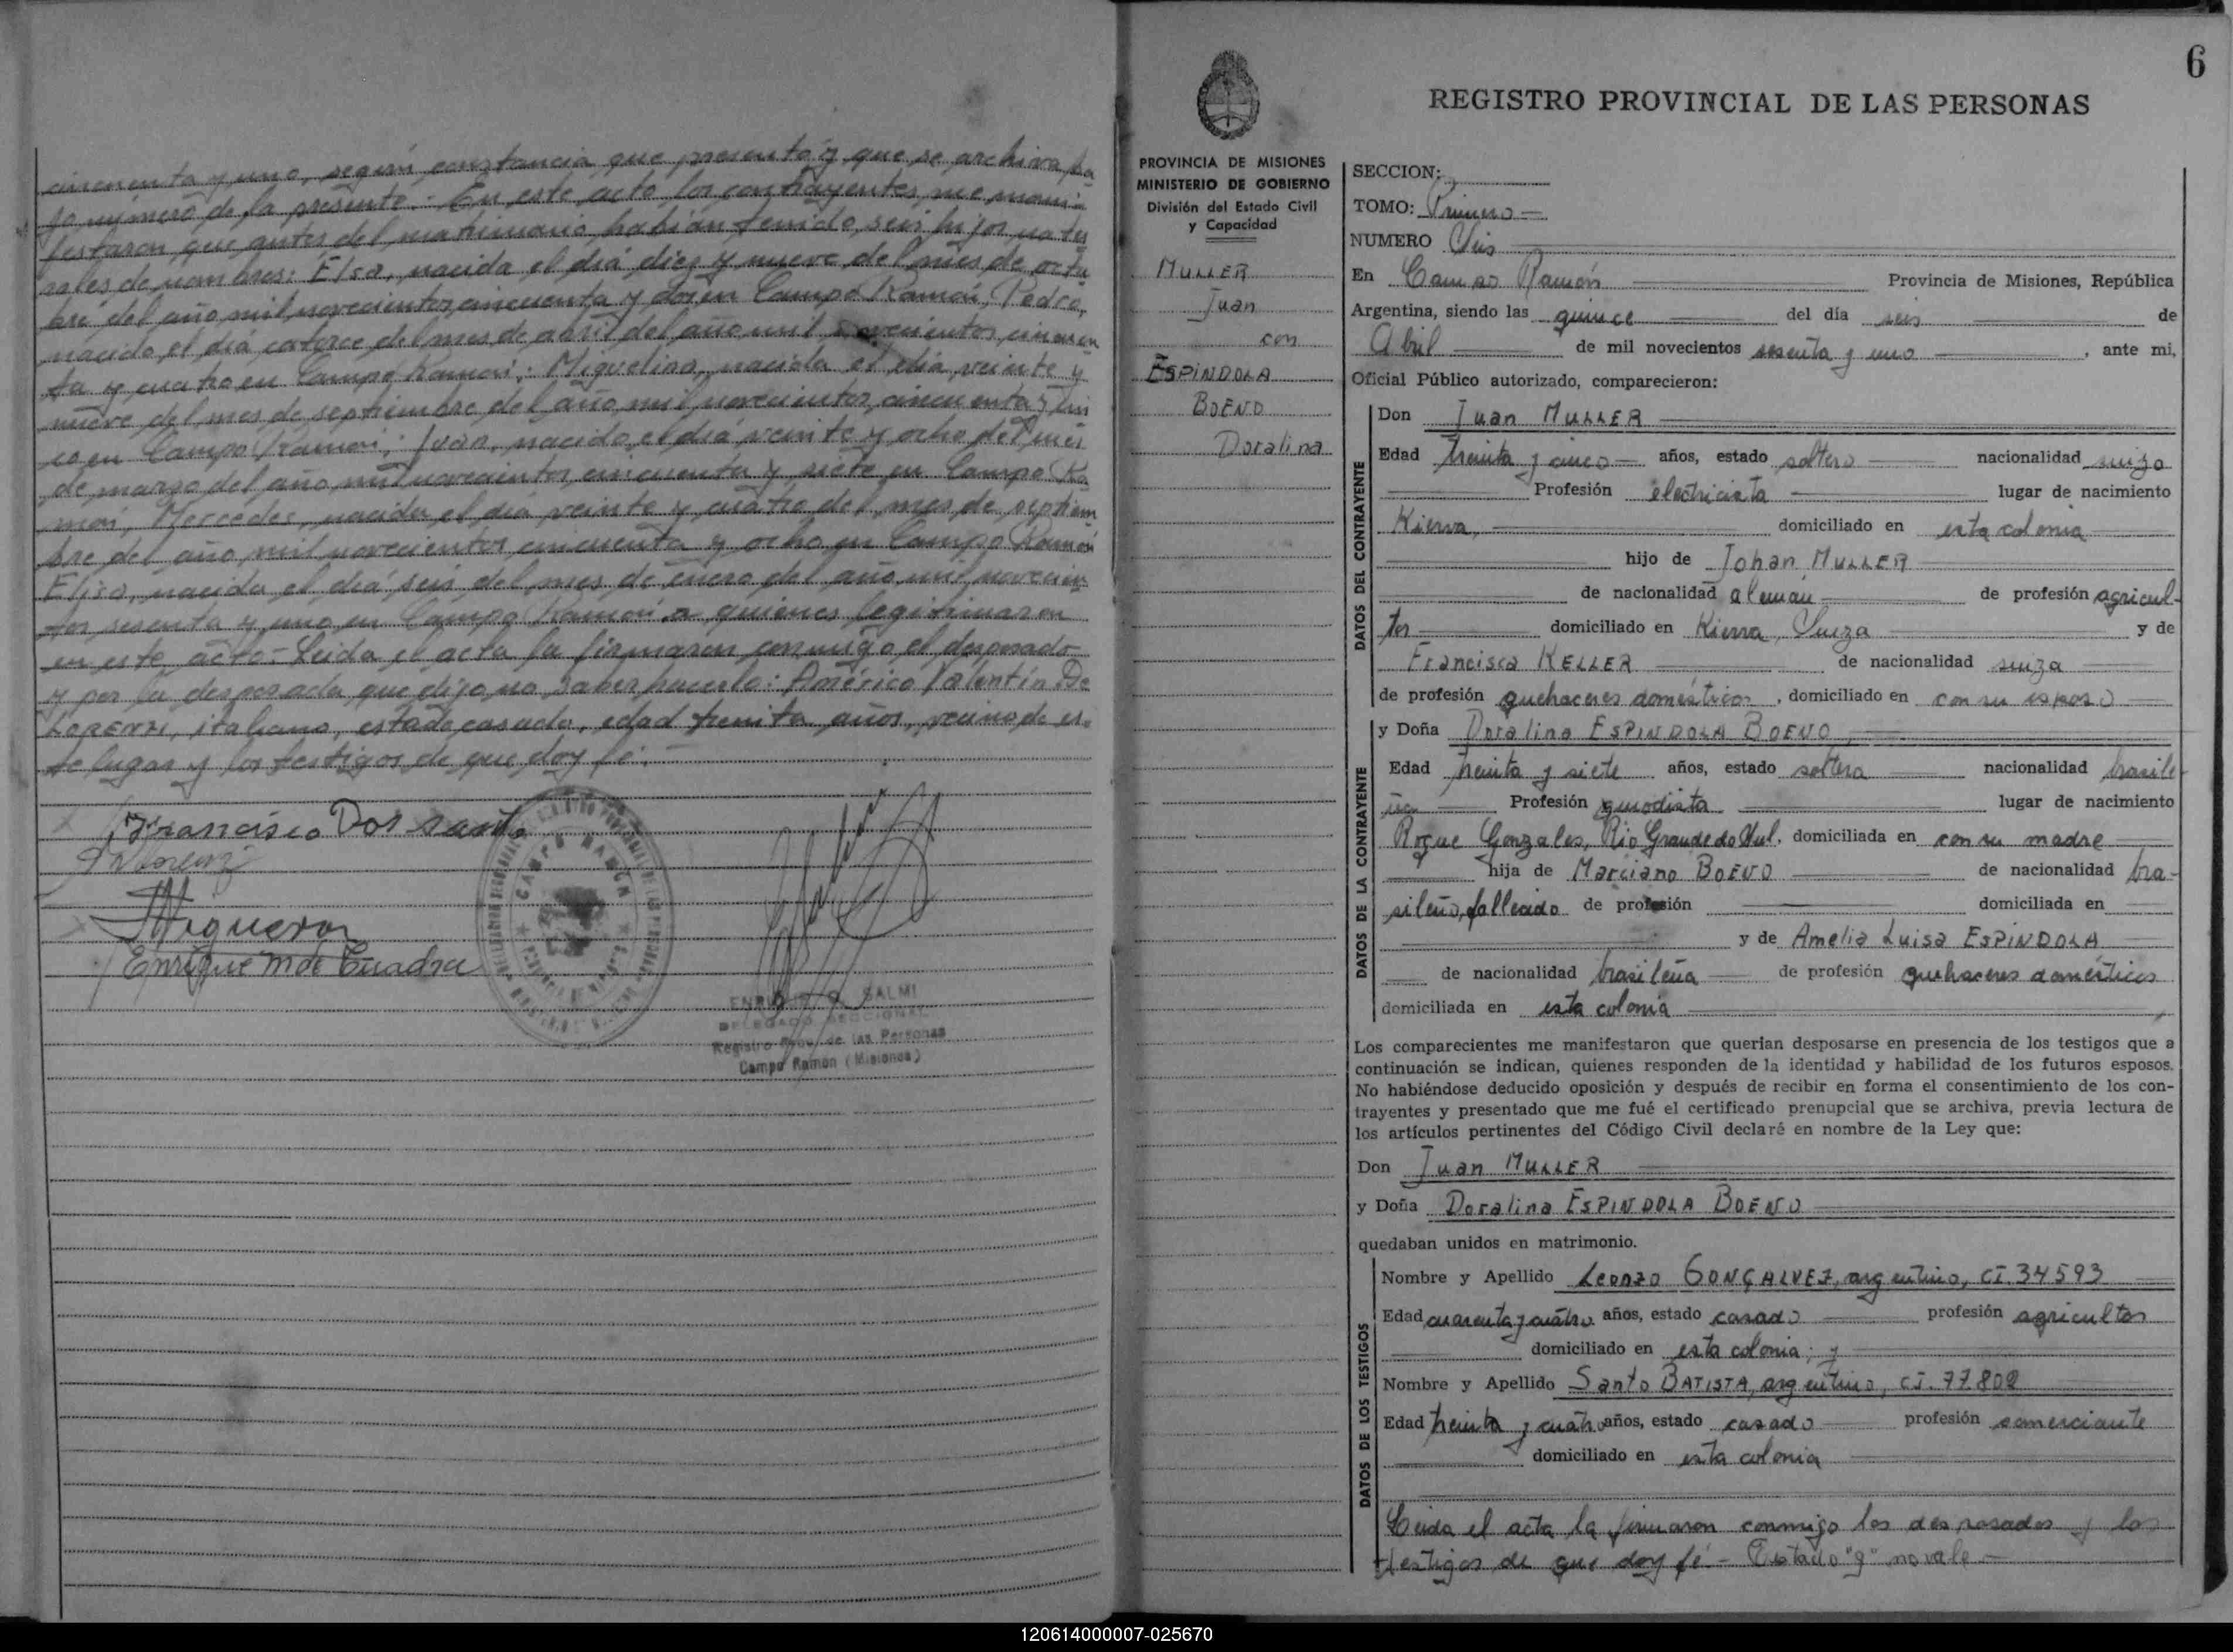 cincuenta y uno, según constancia que presentó y que se archiva ba
jo número de la presente.- En este acto los contrayentes me mani-
festaron que antes del matrimonio habían tenido seis hijos natu
rales de nombres: Elsa, nacida el día diez y nueve del mes de octu
bre del año mil novecientos cincuenta y dos en Campo Ramón; Pedro,
nacido el día catorce del mes de abril del año mil novecientos cincuen
ta y cuatro en Campo Ramón; Miguelina, nacida el día veinte y
nueve del mes de septiembre del año mil novecientos cincuenta y cin
co en Campo Ramón; Juan, nacido el día veinte y ocho del mes
de marzo del año mil novecientos cincuenta y siete en Campo Ra
món, Mercedes, nacida el día veinte y cuatro del mes de septiem
bre del año mil novecientos cincuenta y ocho en Campo Ramón
Elisa, nacida el día seis del mes de enero del año mil novecien
tos sesenta y uno en Campo Ramón a quienes legitimaron
en este acto.- Leída el acta la firmaron conmigo el desposado
y por la desposada que dijo no saber hacerlo: Américo Valentín De
LORENZI, italiano, estado casado, edad treinta años, vecino de es-
te lugar y los testigos de que doy fé.-
Francisco Dos santo
Enrique M de Cuadra
CAMPO RAMON
SALMI
DELEGADO SECCIONAL
Registro Prov. de las Personas
Campo Ramón (Misiones)
6
REGISTRO PROVINCIAL DE LAS PERSONAS
PROVINCIA DE MISIONES
MINISTERIO DE GOBIERNO
División del Estado Civil
y Capacidad
MULLER
Juan
con
ESPINDOLA
BOENO
Doralina
SECCION:
TOMO: Primero
NUMERO Seis
En Campo Ramón Provincia de Misiones, República
Argentina, siendo las quince del día seis de
Abril de mil novecientos sesenta y uno , ante mi,
Oficial Público autorizado, comparecieron:
DATOS DEL CONTRAYENTE
Don Juan MULLER
Edad treinta y cinco años, estado soltero nacionalidad suizo
Profesión electricista lugar de nacimiento
Kierra, domiciliado en esta colonia
hijo de Johan MULLER
de nacionalidad alemán de profesión agricul-
tor domiciliado en Kierra, Suiza y de
Francisca KELLER de nacionalidad suiza
de profesión quehaceres domésticos , domiciliado en con su esposo
DATOS DE LA CONTRAYENTE
y Doña Doralina ESPINDOLA BOENO
Edad treinta y siete años, estado soltera nacionalidad brasile-
ña Profesión gmodista lugar de nacimiento
Roque Gonzales, Rio Grande do Sul, domiciliada en con su madre
hija de Marciano BOENO de nacionalidad bra-
sileño, fallecido de profesión domiciliada en
y de Amelia Luisa ESPINDOLA
de nacionalidad brasileña de profesión quehaceres domésticos
domiciliada en esta colonia
Los comparecientes me manifestaron que querían desposarse en presencia de los testigos que a
continuación se indican, quienes responden de la identidad y habilidad de los futuros esposos.
No habiéndose deducido oposición y después de recibir en forma el consentimiento de los con-
trayentes y presentado que me fué el certificado prenupcial que se archiva, previa lectura de
los artículos pertinentes del Código Civil declaré en nombre de la Ley que:
Don Juan MULLER
y Doña Doralina ESPINDOLA BOENO
quedaban unidos en matrimonio.
DATOS DE LOS TESTIGOS
Nombre y Apellido Leonzo GONÇALVEZ, argentino, CI. 34593
Edad cuarenta y cuatro años, estado casado profesión agricultor
domiciliado en esta colonia; y
Nombre y Apellido Santo BATISTA, argentino, CI. 77.802
Edad treinta y cuatro años, estado casado profesión comerciante
domiciliado en esta colonia
Leída el acta la firmaron conmigo los desposados y los
testigos de que doy fé.- Testado "g" no vale
120614000007-025670